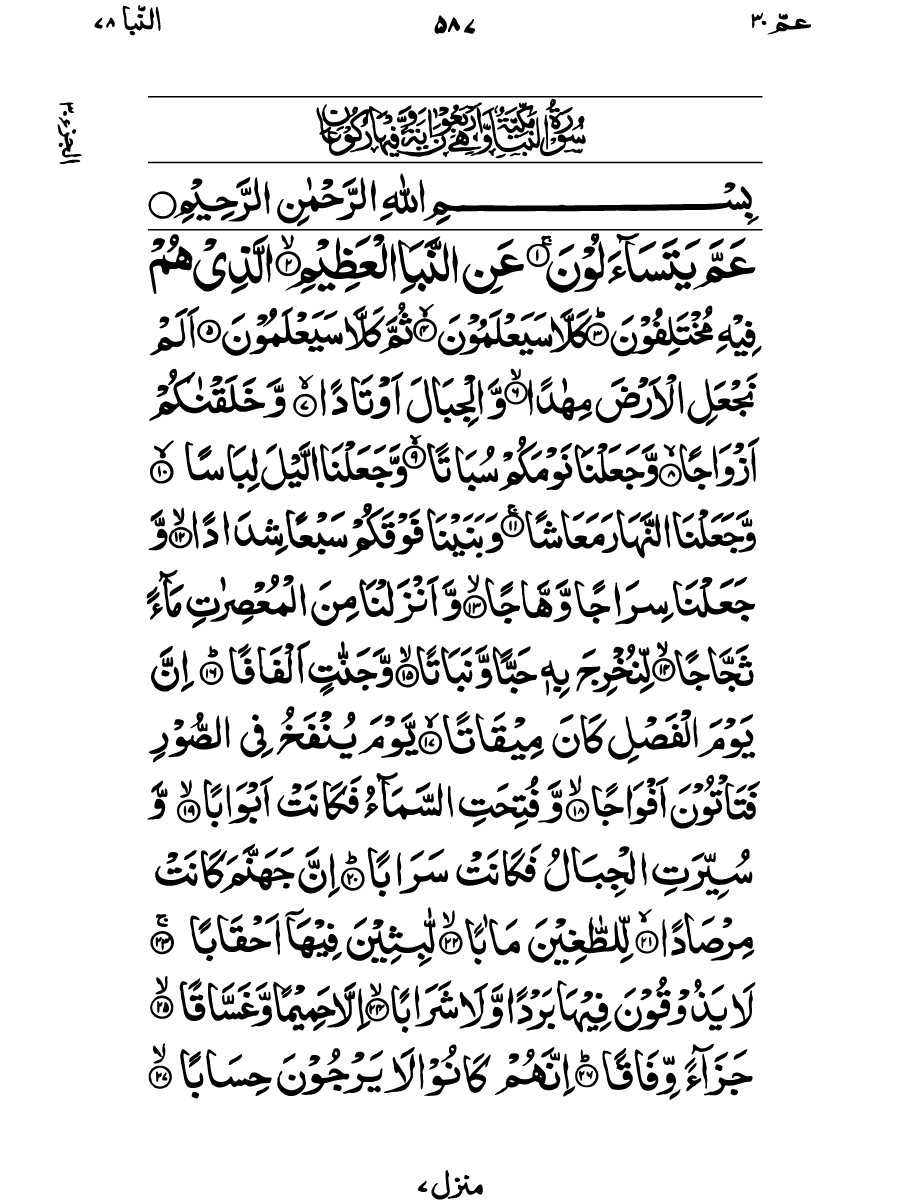 عمّ ٣٠
٥٨٧
النّبا ٧٨
الجزء ٣٠
سُوْرَةُ النَّبَاِ مَكِّيَّةٌ وَّهِیَ اَرْبَعُوْنَ اٰیَةً وَّفِیْهَا رُكُوْعَانِ
بِسْمِ اللّٰهِ الرَّحْمٰنِ الرَّحِیْمِ
عَمَّ یَتَسَآءَلُوْنَۚ۝١ عَنِ النَّبَاِ الْعَظِیْمِۙ۝٢ الَّذِیْ هُمْ
فِیْهِ مُخْتَلِفُوْنَؕ۝٣ كَلَّا سَیَعْلَمُوْنَۙ۝٤ ثُمَّ كَلَّا سَیَعْلَمُوْنَ۝٥ اَلَمْ
نَجْعَلِ الْاَرْضَ مِهٰدًاۙ۝٦ وَّ الْجِبَالَ اَوْتَادًا۪ۙ۝٧ وَّ خَلَقْنٰكُمْ
اَزْوَاجًاۙ۝٨ وَّجَعَلْنَا نَوْمَكُمْ سُبَاتًاۙ۝٩ وَّجَعَلْنَا الَّیْلَ لِبَاسًاۙ۝١٠
وَّجَعَلْنَا النَّهَارَ مَعَاشًا۪۝١١ وَبَنَیْنَا فَوْقَكُمْ سَبْعًا شِدَادًاۙ۝١٢ وَّ
جَعَلْنَا سِرَاجًا وَّهَّاجًاۙ۝١٣ وَّ اَنْزَلْنَا مِنَ الْمُعْصِرٰتِ مَآءً
ثَجَّاجًاۙ۝١٤ لِّنُخْرِجَ بِهٖ حَبًّا وَّنَبَاتًاۙ۝١٥ وَّجَنّٰتٍ اَلْفَافًاؕ۝١٦ اِنَّ
یَوْمَ الْفَصْلِ كَانَ مِیْقَاتًاۙ۝١٧ یَّوْمَ یُنْفَخُ فِی الصُّوْرِ
فَتَاْتُوْنَ اَفْوَاجًاۙ۝١٨ وَّ فُتِحَتِ السَّمَآءُ فَكَانَتْ اَبْوَابًاۙ۝١٩ وَّ
سُیِّرَتِ الْجِبَالُ فَكَانَتْ سَرَابًاؕ۝٢٠ اِنَّ جَهَنَّمَ كَانَتْ
مِرْصَادًاۙ۝٢١ لِّلطّٰغِیْنَ مَاٰبًاۙ۝٢٢ لّٰبِثِیْنَ فِیْهَاۤ اَحْقَابًاۚ۝٢٣
لَا یَذُوْقُوْنَ فِیْهَا بَرْدًا وَّلَا شَرَابًاۙ۝٢٤ اِلَّا حَمِیْمًا وَّغَسَّاقًاۙ۝٢٥
جَزَآءً وِّفَاقًاؕ۝٢٦ اِنَّهُمْ كَانُوْا لَا یَرْجُوْنَ حِسَابًاۙ۝٢٧
منزل ٧